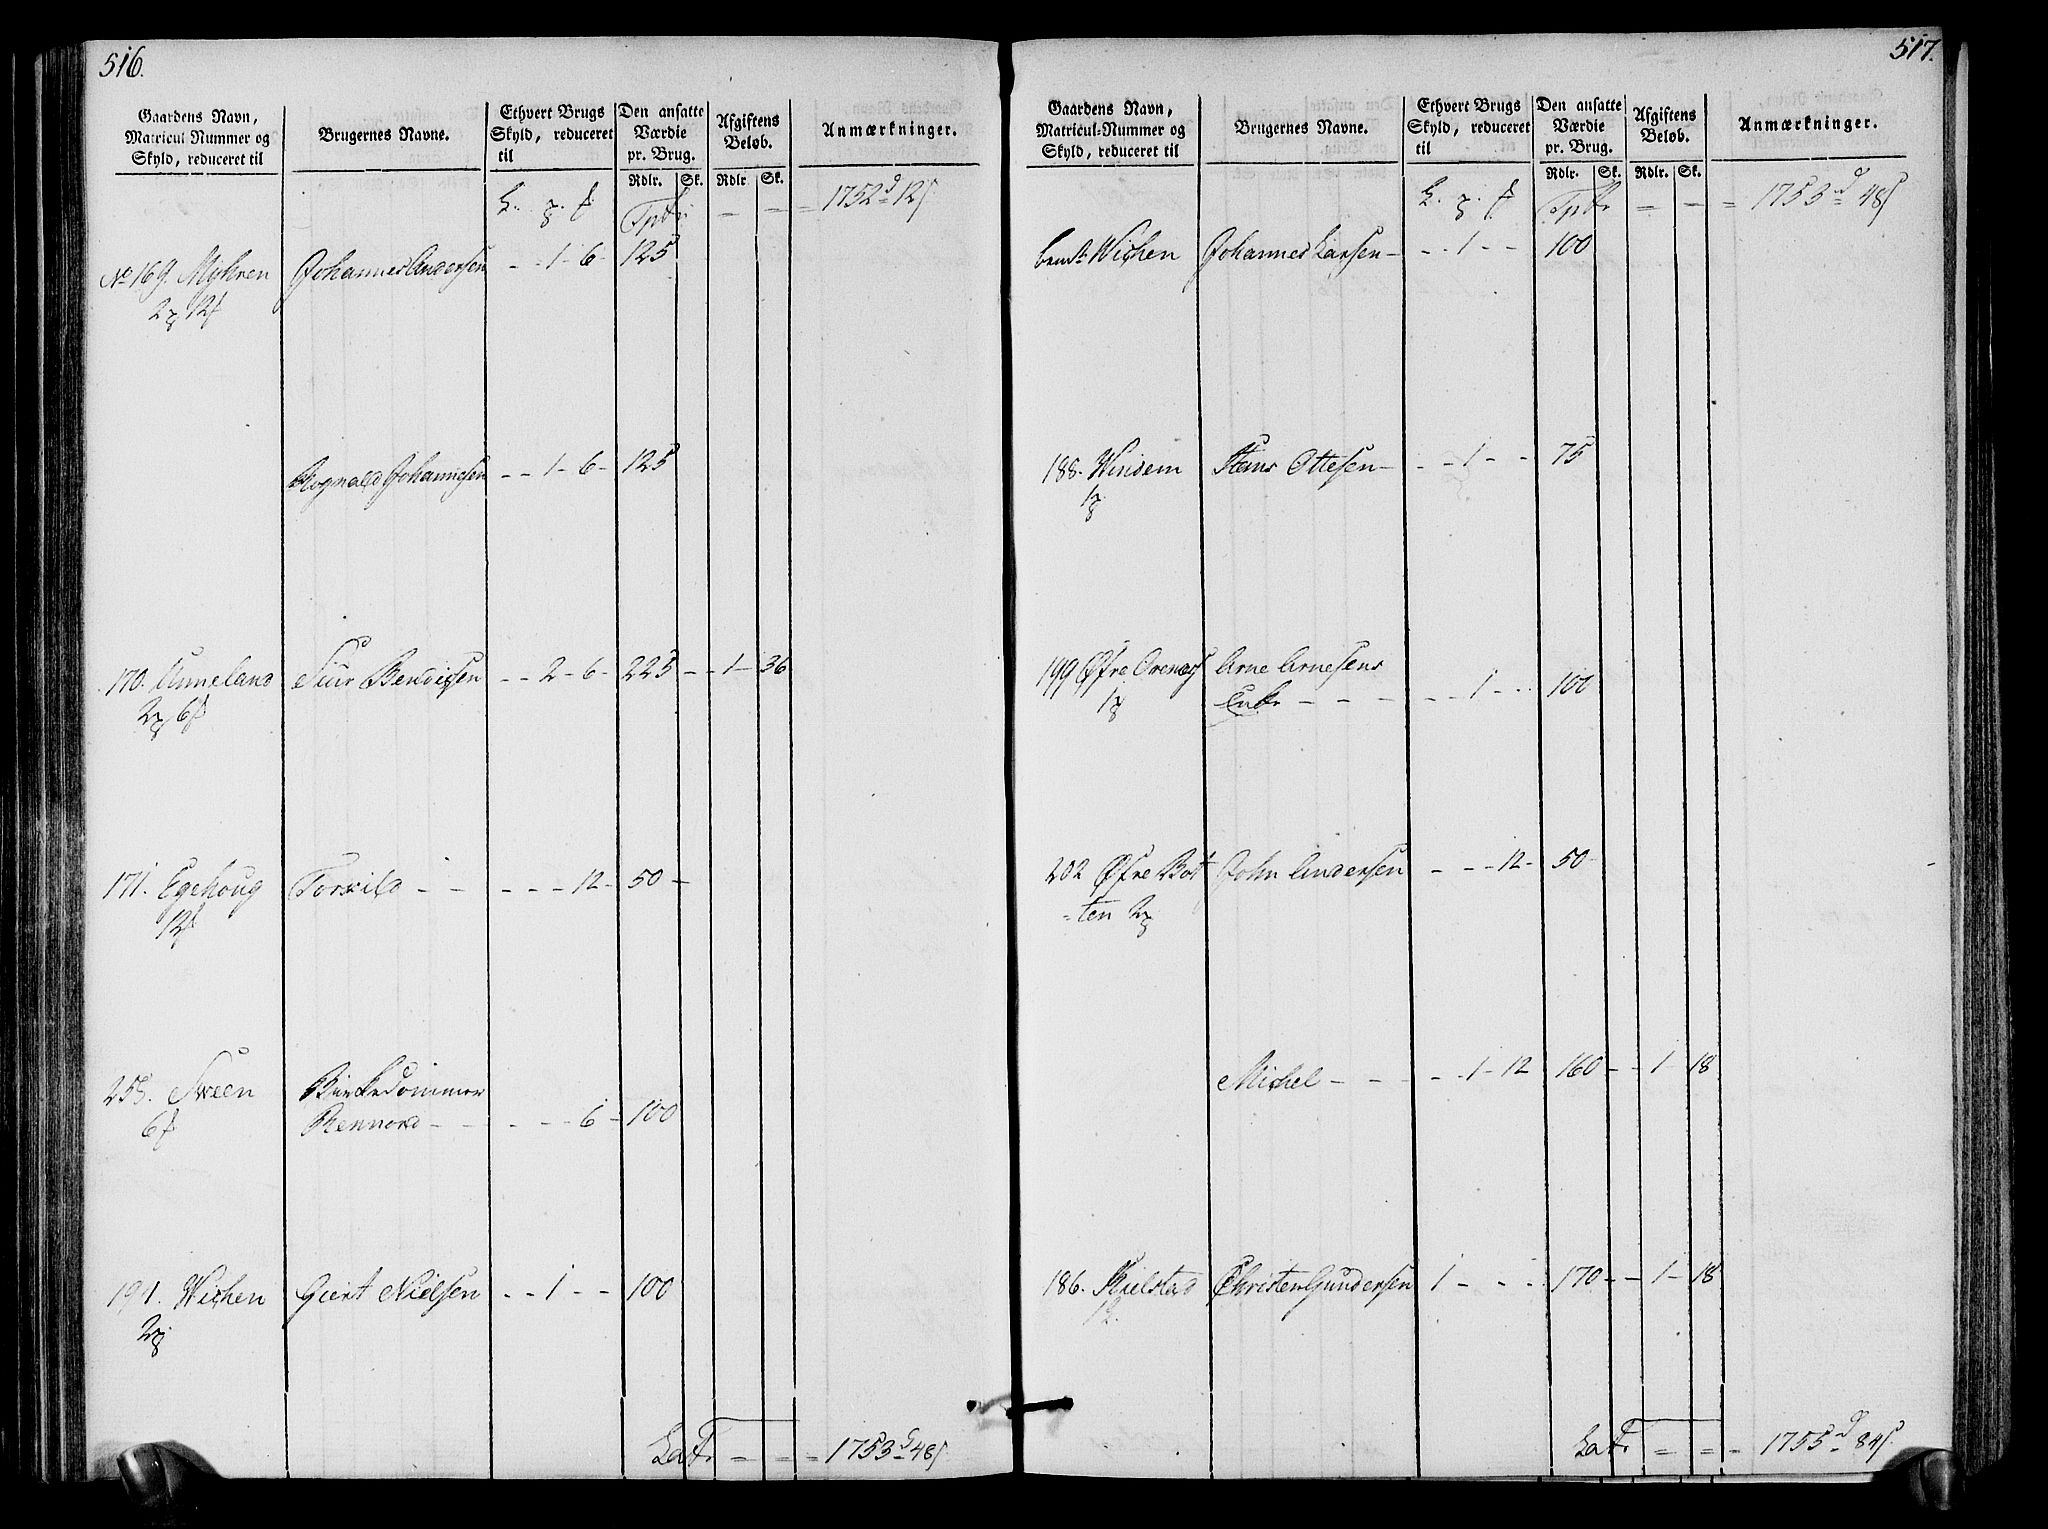 516.
Gaardens Navn, Matricul Nummer og Skyld, reduceret til
Brugernes Navne.
Ethvert Brugs Skyld, reduceret til
Den ansatte Værdie pr. Brug.
Afgiftens Beløb.
Anmærkninger.
Rdlr. Sk. Rdlr. Sk.
Tptr. - - 1752 d 12 s
No 169. Myhren Johannes Andersen - - 1 - 6 - 125
12
Rognald Johannesen - - 1 - 6 - 125
170. Unneland Siur Bendixsen - - 2 - 6 - 225 - - 1 - 36
171. Egehoug Torkild - - - - - - 12 - 50 -
12
255. Sveen Birkedommer
6 Rennord - - - - - 6 - 100
191. Wichen Giert Nielsen - - 1 - - 100
Latr. - - - 1753 d 48 s
517.
Gaardens Navn, Matricul-Nummer og Skyld, reduceret til
Brugernes Navne.
Ethvert Brugs Skyld, reduceret til
Den ansatte Værdie pr. Brug.
Afgiftens Beløb.
Anmærkninger.
Rdlr. Sk. Rdlr. Sk.
Tptr. = - = 1753 d 48 s
bemt. Wichen Johannes Larsen - - - 1 - - 100
188. Windem Hans Ottesen - - - 1 - - 75
199 Øfre Arne Arnesens
Enke - - - - - - 1 - - 100
202 Øfre Bot John Andersen - - - 12 - 50
=ten
Michel - - - - - 1 - 12 160 - - 1 - 18
186. Kielstad Christen Gundersen 1 - - - 170 - - 1 - 18
Latr. = = = 1755 d 84 s